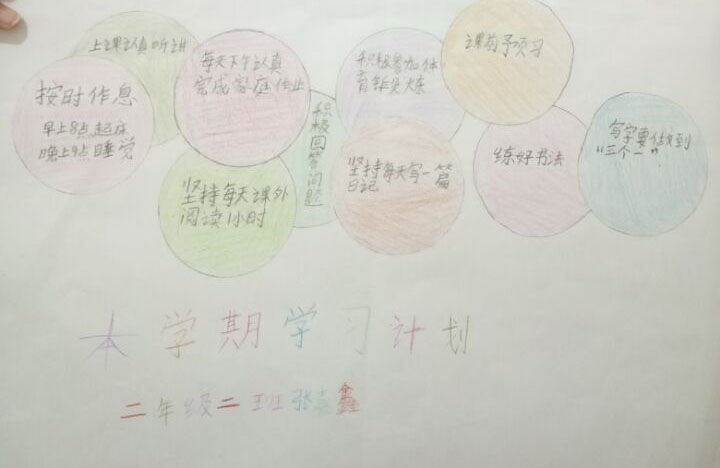 上课认真听讲
按时作息
早上8点起床
晚上9点睡觉
每天下午认真
完成家庭作业
坚持每天课外
阅读1小时
积极回答问题
积极参加体
育锻炼
坚持每天写一篇
日记
课前予项习
练好书法
写字要做到
"三个一".
本学期学习计划
二年级二班张嘉鑫